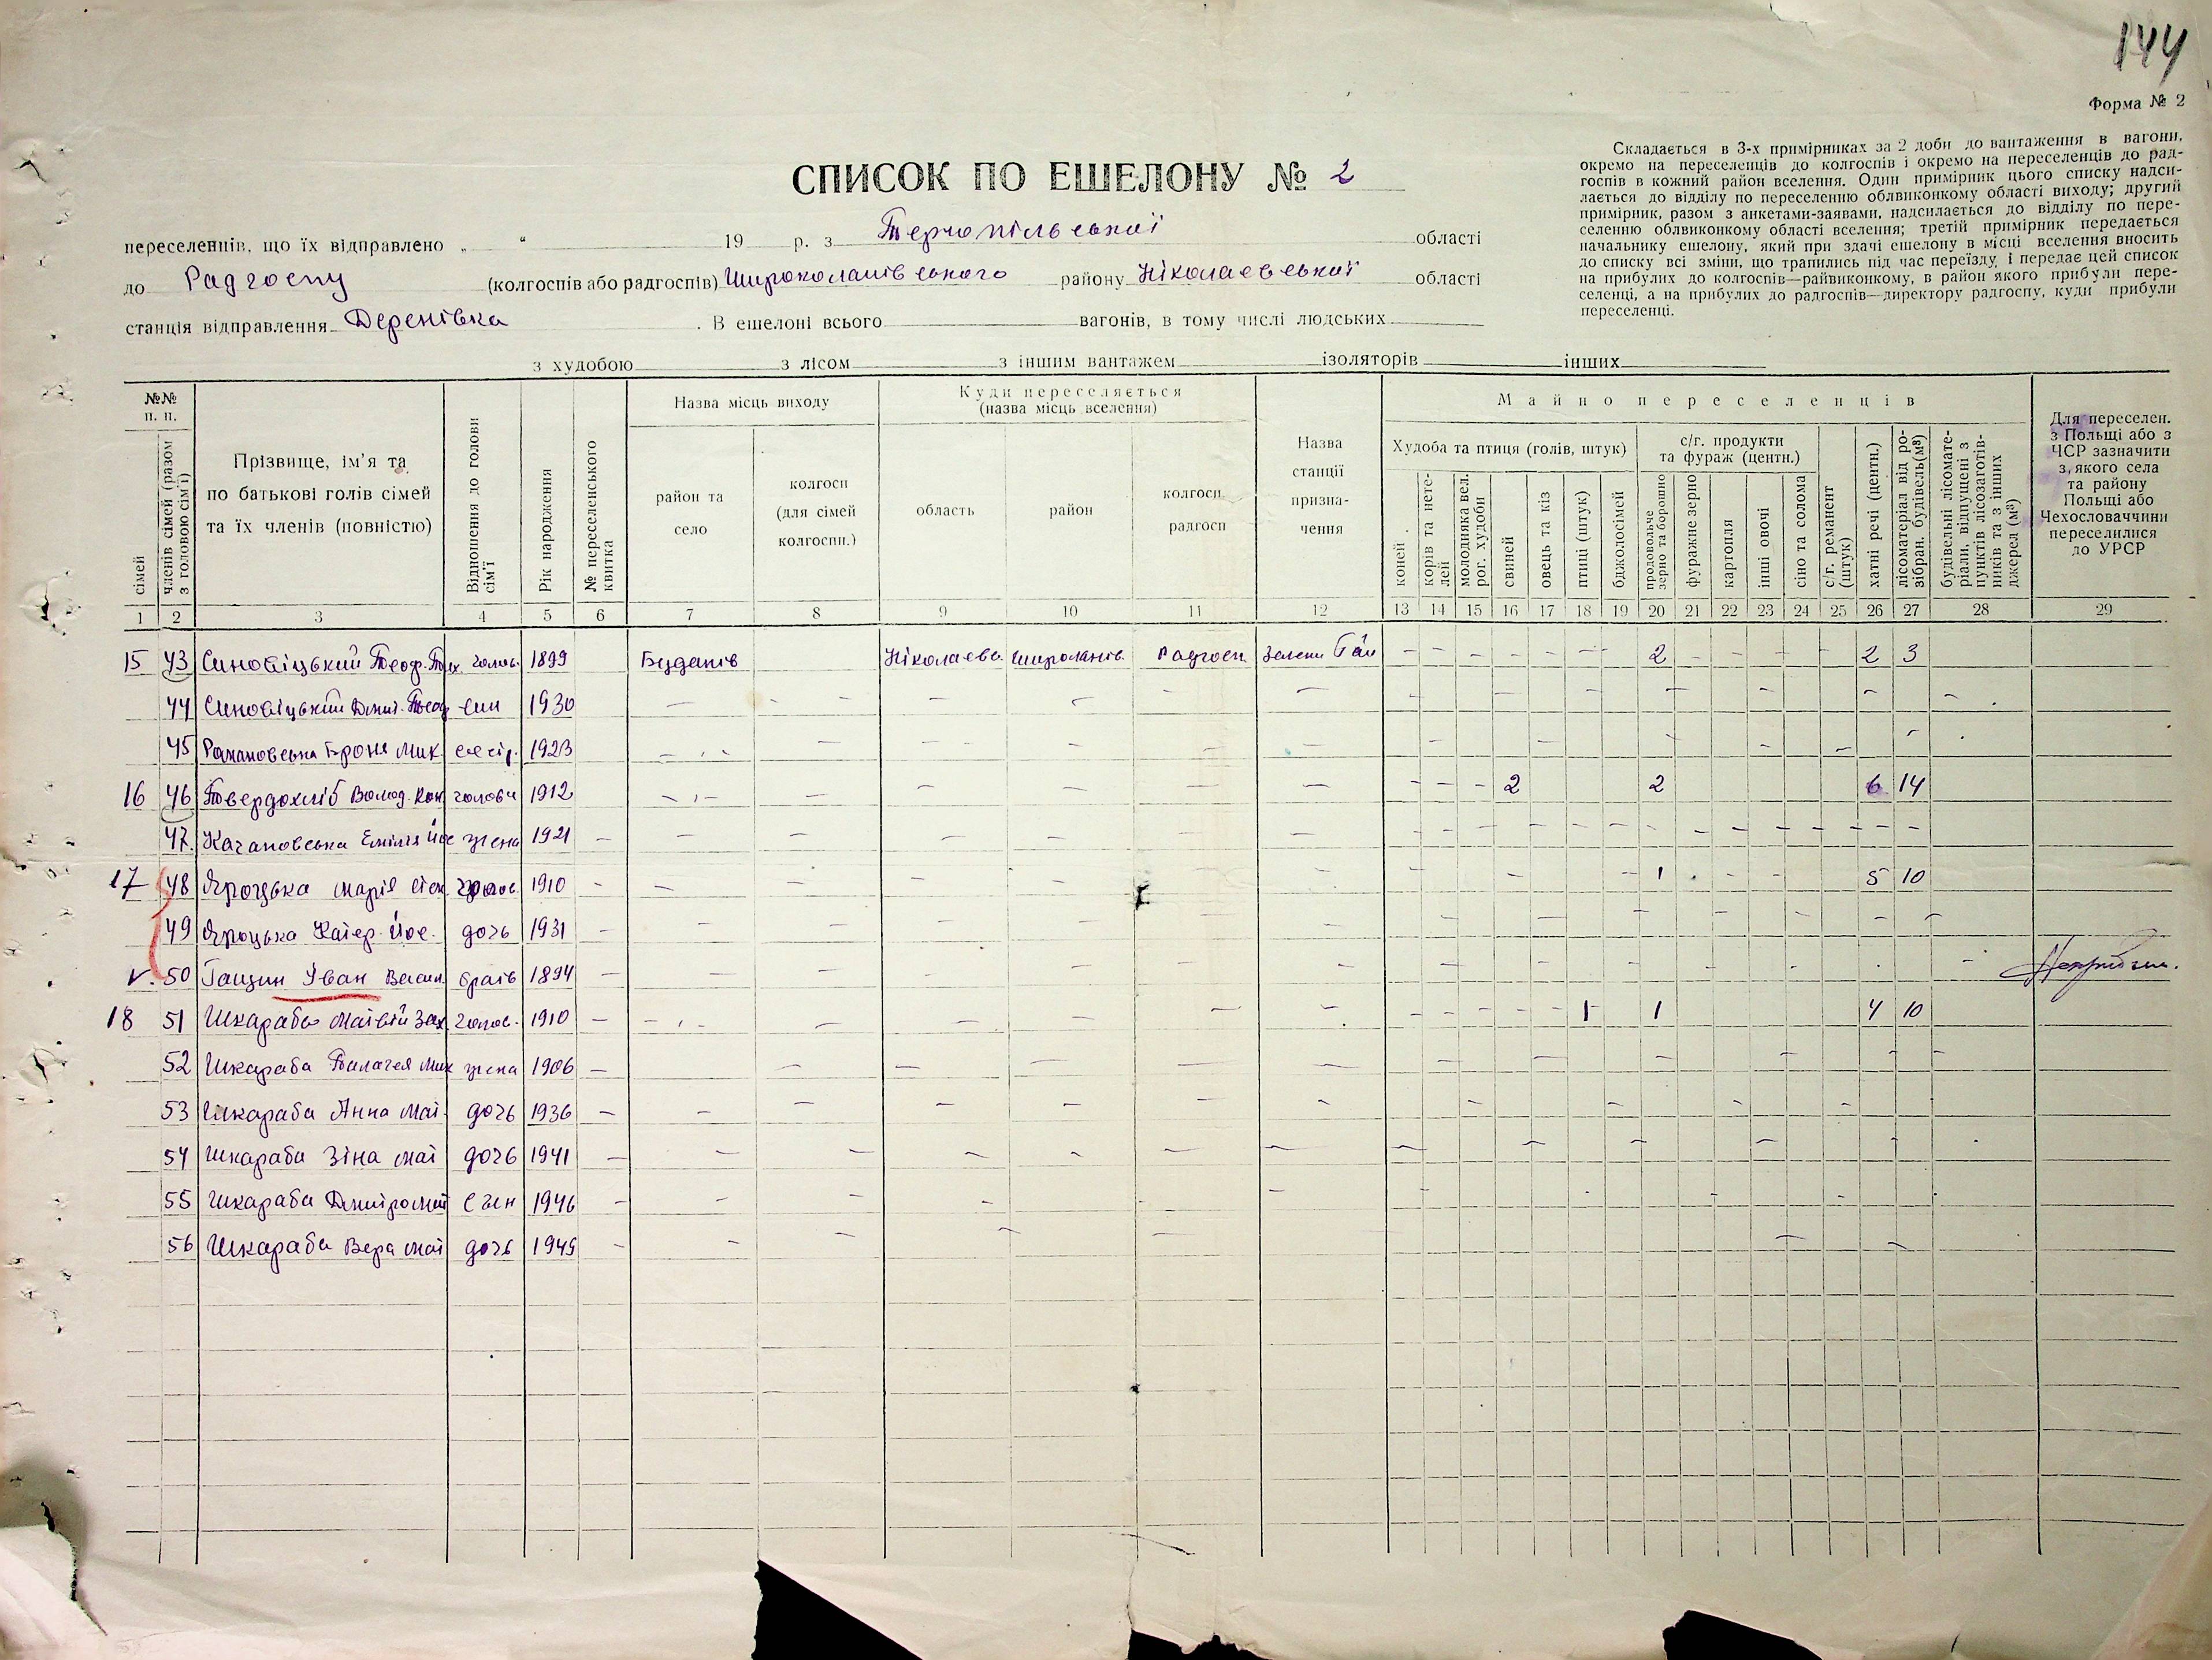 144
Форма № 2
Складається в 3-х примірниках за 2 доби до вантаження в вагони,
окремо на переселенців до колгоспів і окремо на переселенців до рад-
госпів в кожний район вселення. Один примірник цього списку надси-
лається до відділу по переселенню облвиконкому області виходу; другий
примірник, разом з анкетами-заявами, надсилається до відділу по пере-
селенню облвиконкому області вселення; третій примірник передається
начальнику ешелону, який при здачі ешелону в місці вселення вносить
до списку всі зміни, що трапились під час переїзду, і передає цей список
на прибулих до колгоспів—райвиконкому, в район якого прибули пере-
селенці, а на прибулих до радгоспів—директору радгоспу, куди прибули
переселенці.
СПИСОК ПО ЕШЕЛОНУ № 2
переселенців, що їх відправлено „ “ 19 р. з Тернопільської області
до Радгоспу (колгоспів або радгоспів) Широколанівського району Ніколаевської області
станція відправлення Деренівка. В ешелоні всього вагонів, в тому числі людських
з худобою з лісом з іншим вантажем ізоляторів інших
№№ п. п.
сімей
членів сімей (разом з головою сім'ї)
Прізвище, ім'я та по батькові голів сімей та їх членів (повністю)
Відношення до голови сім'ї
Рік народження
№ переселенського квитка
Назва місць виходу
район та село
колгосп (для сімей колгоспн.)
Куди переселяється (назва місць вселення)
область
район
колгосп радгосп
Назва станції призна-чення
Майно переселенців
Худоба та птиця (голів, штук)
коней
корів та нете-лей
молодняка вел. рог. худоби
свиней
овець та кіз
птиці (штук)
бджолосімей
с/г. продукти та фураж (центн.)
продовольче зерно та борошно
фуражне зерно
картопля
інші овочі
сіно та солома
с/г. реманент (штук)
хатні речі (центн.)
лісоматеріал від ро-зібран. будівель (м³)
будівельні лісомате-ріали, відпущені з пунктів лісозаготів-ників та з інших джерел (м³)
Для переселен. з Польщі або з ЧСР зазначити з якого села та району Польщі або Чехословаччини переселилися до УРСР
1 2 3 4 5 6 7 8 9 10 11 12 13 14 15 16 17 18 19 20 21 22 23 24 25 26 27 28 29
15 43 Синовіцький Теоф. голов. 1899 Буданів Ніколаевс. Широланів. Радгосп Зелени Гай 2 2 3
44 Синовіцький Дмит. Теоф син 1930
45 Романовська Броня Мик. сестр. 1923
16 46 Твердохліб Волод. Кон голова 1912 2 2 6 14
47. Качановська Емілія Йос жена 1921
17 48 Яроцька Марія Степ голов. 1910 1 5 10
49 Яроцька Катер. Йос. дочь 1931
v. 50 Гощин Іван Васил. братв 1894
18 51 Шкараба Матвій Зах. голов. 1910 1 1 4 10
52 Шкараба Палагея Мик жена 1906
53 Шкараба Анна Мат. дочь 1936
54 Шкараба Зіна Мат дочь 1941
55 Шкараба Дмитро Мат син 1946
56 Шкараба Вера Мат дочь 1949